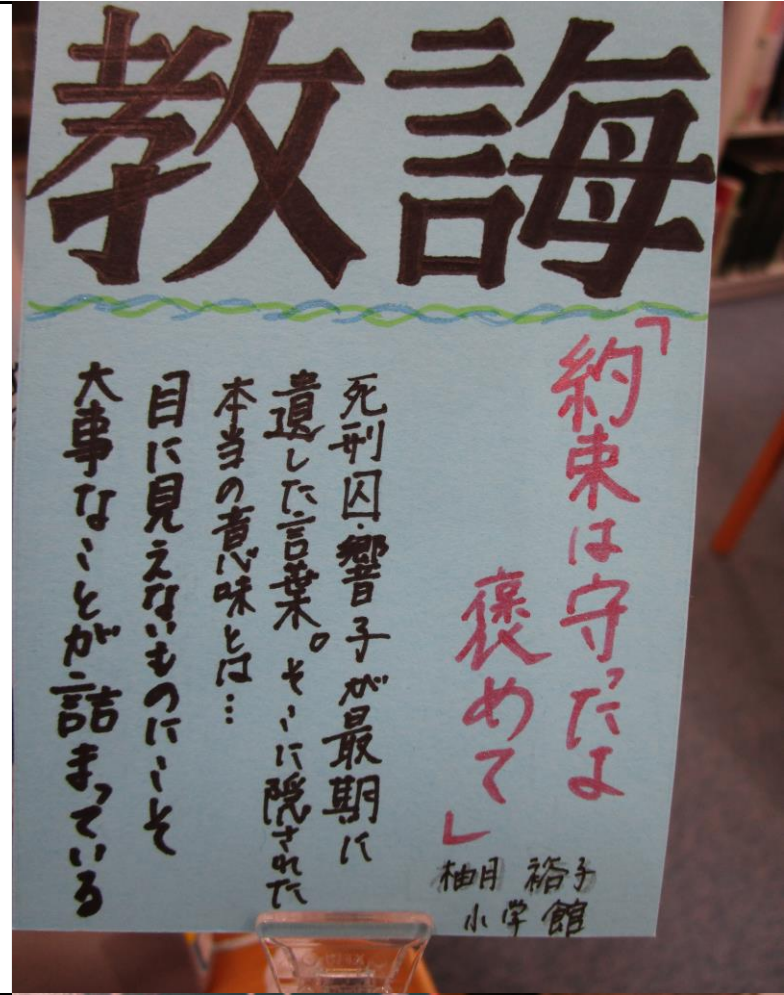 教誨
「約束は守ったよ
褒めて」
死刑囚・響子が最期に
遺した言葉。そこに隠された
本当の意味とは…
目に見えないものにこそ
大事なことが詰まっている
柚月 裕子
小学館